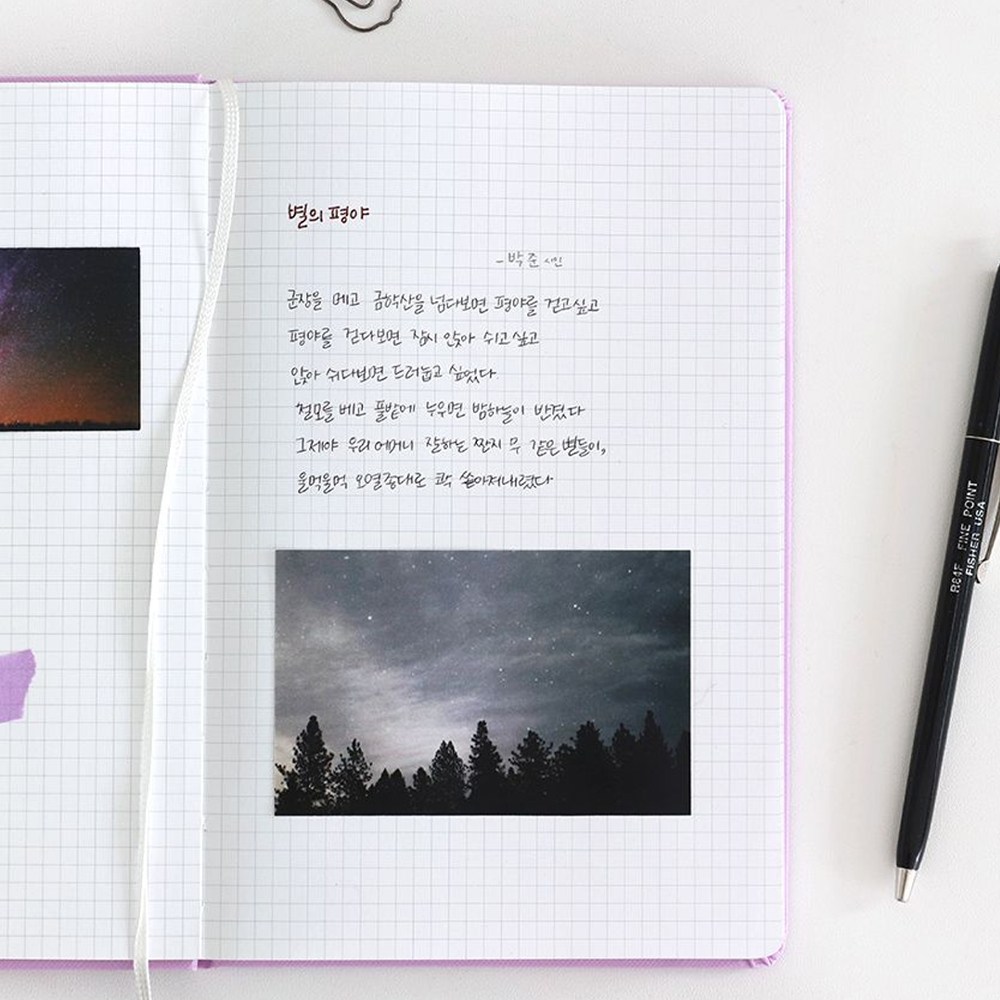 별의 평야
- 박준 시인
군장을 메고 금학산을 넘다보면 평야를 걷고싶고
평야를 걷다보면 잠시 앉아 쉬고싶고
앉아 쉬다보면 드러눕고 싶었다.
철모를 베고 풀밭에 누우면 밤하늘이 반겼다
그제야 우리 어머니 잘하는 짠지 무 같은 별들이,
울먹울먹 오열종대로 콱 쏟아져내렸다
R84F FINE POINT
FISHER USA